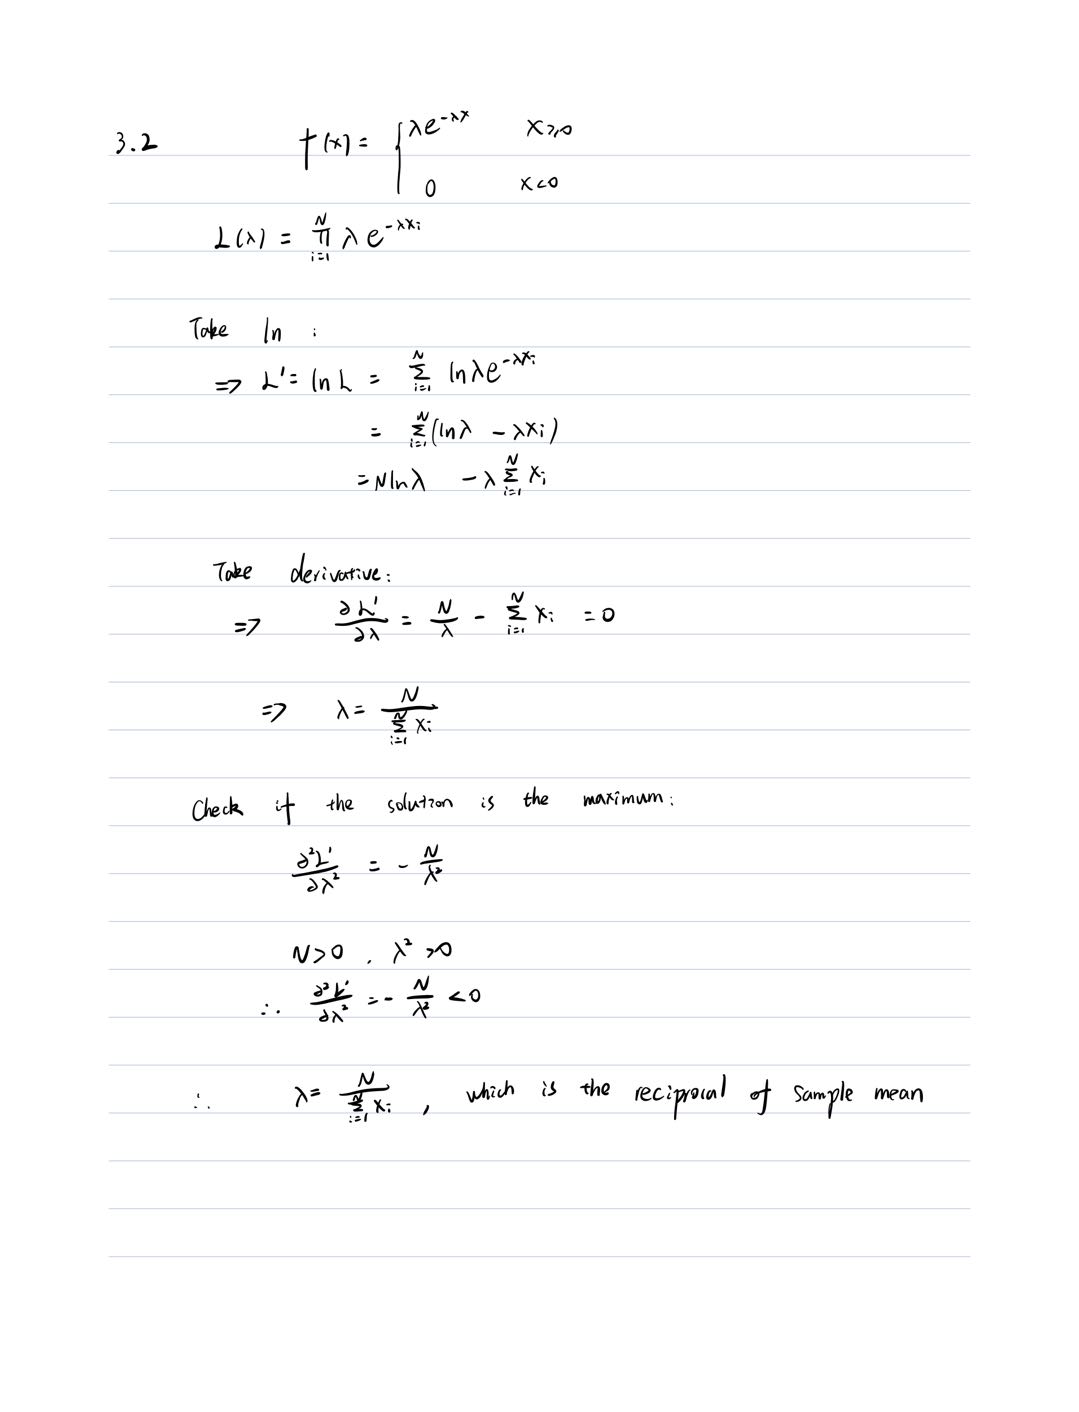 3.2 f(x) = { λe^{-λx} x≥0
0 x<0
L(λ) = ∏_{i=1}^{N} λ e^{-λx_i}
Take ln :
⇒ L' = ln L = ∑_{i=1}^{N} ln λe^{-λx_i}
= ∑_{i=1}^{N} (lnλ - λx_i)
= N lnλ - λ ∑_{i=1}^{N} x_i
Take derivative:
⇒ ∂L'/∂λ = N/λ - ∑_{i=1}^{N} x_i = 0
⇒ λ = N / ∑_{i=1}^{N} x_i
Check if the solution is the maximum:
∂²L'/∂λ² = - N/λ²
N>0 , λ²>0
∴ ∂²L'/∂λ² = - N/λ² < 0
∴ λ = N / ∑_{i=1}^{N} x_i , which is the reciprocal of sample mean